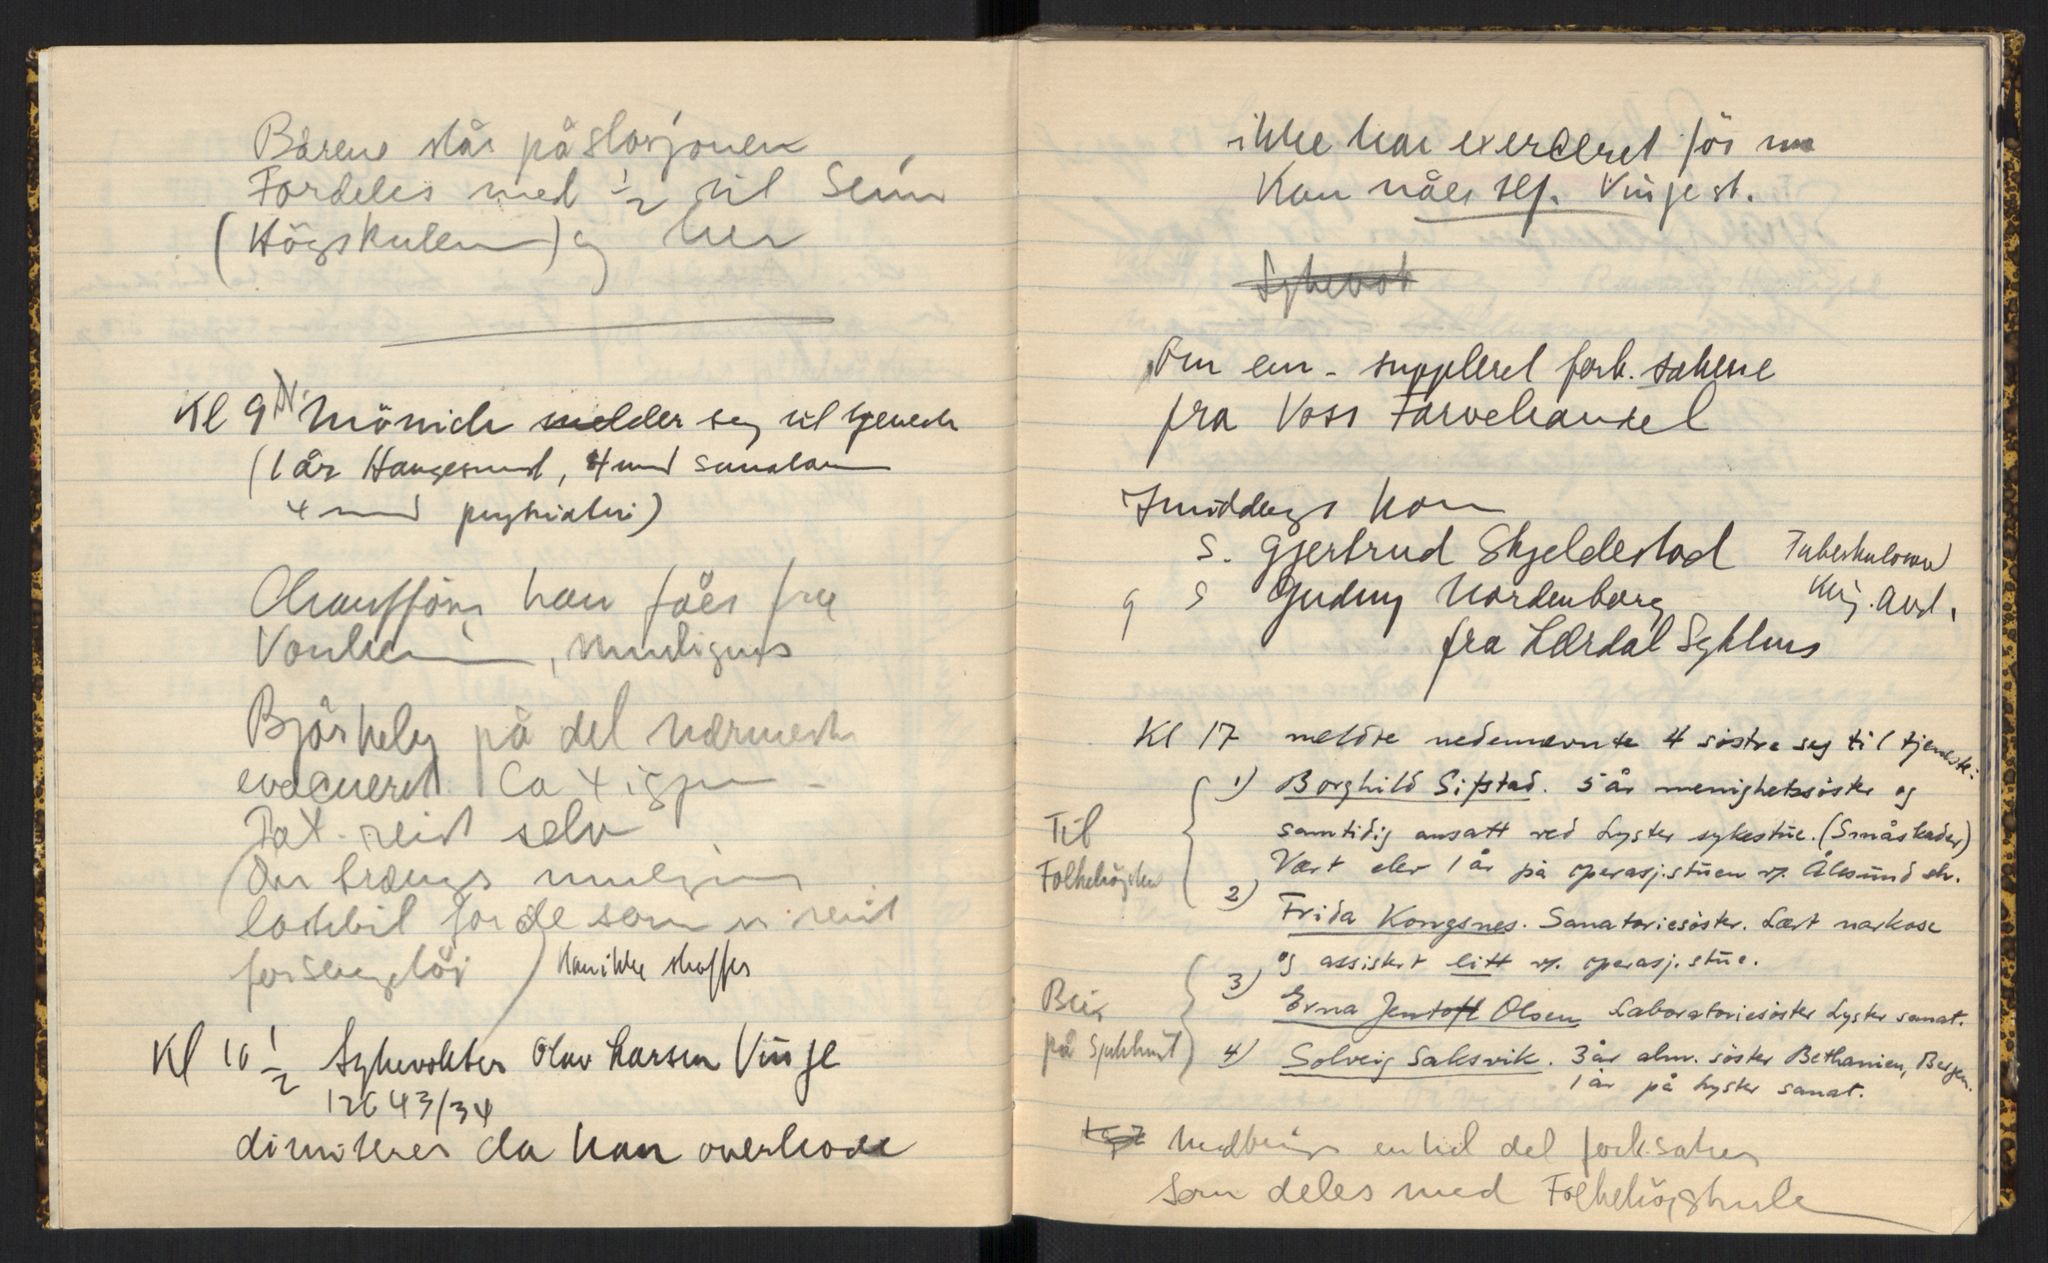 Bårene står på stasjonen
Fordeles med ½ til
(Högskulen) og her
Kl 9 Dr. Mönich melder seg til tjeneste
(1 år Haugesund, 4 mnd sanatorium
4 mnd psykiatri)
Chaufför kan fåes fra
Vonheim, muligens
Björkely på det nærmeste
evacueret. Ca 4 igjen
Pat. reist selv
(Der trengs muligens
lastebil for de som er
for sengetöi) kan ikke skaffes
Kl 10 ½ Sykevokter Olav Larsen Vinje
12643/34
dimiteres da han overhode
ikke har exerceret för nu
Kan nåes tlf. Vinje st.
Sykevok
Om em. suppleret forb. sakene
fra Voss Farvehandel
Imiddags kom
S. Gjertrud Skjeldestad Tuberkulosen
og S Gudny Nordenborg Kir. avd.
fra Lærdal Sykhus
Kl 17 meldte nedennevnte 4 söstre seg til tjeneste:
Til Folkehögsk
1) Borghild Sifstad. 5 år menighetssöster og
samtidig ansatt ved Lyster sykestue. (Småskader)
Vært elev 1 år på operasj.stuen v. Ålesund sh.
2) Frida Kongsnes. Sanatoriesöster. Lært narkose
og assistert litt v. operasj.stue.
Blir på Sjukhust
3) Erna Jentoft Olsen, Laboratoriesöster Lyster sanat.
4) Solveig Saksvik. 3 år alm. söster Bethanien, Bergen.
1 år på Lyster sanat.
Medbringer en hel del forb.saker
som deles med Folkehögskule